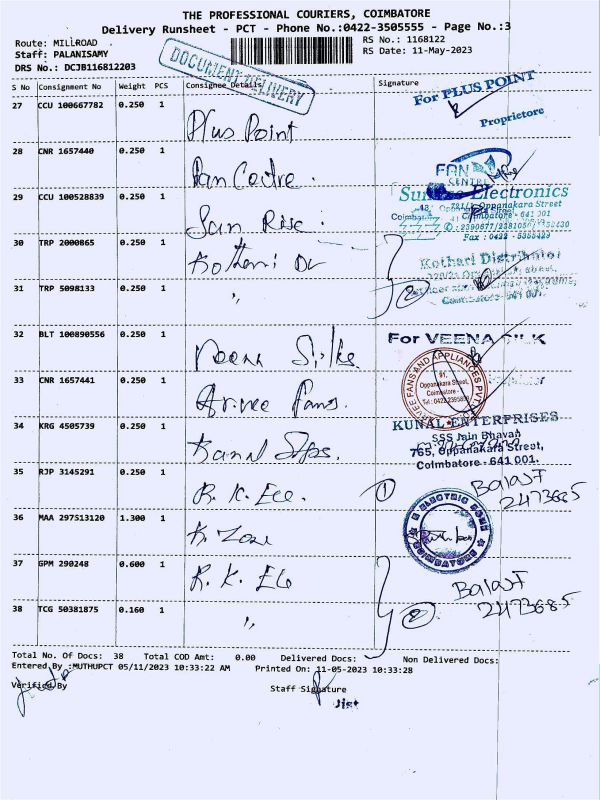 THE PROFESSIONAL COURIERS, COIMBATORE
Delivery Runsheet - PCT - Phone No.:0422-3505555 - Page No.:3
Route: MILLROAD
RS No.: 1168122
Staff: PALANISAMY
RS Date: 11-May-2023
DRS No.: DCJB116812203
DOCUMENT DELIVERY
S No Consignment No Weight PCS Consignee Details Signature
27 CCU 100667782 0.250 1
Plus Point
For PLUS POINT
Proprietore
28 CNR 1657440 0.250 1
Fan Centre.
FAN
CENTRE
29 CCU 100528839 0.250 1
Sun Rise.
Sunrise Electronics
Oppanakara Street
Coimbatore - 641 001
Fax : 0422 - 5355423
30 TRP 2000865 0.250 1
Kothari Dr
Kothari Distributor
Coimbatore - 641 001.
31 TRP 5098133 0.250 1
"
2
32 BLT 100890556 0.250 1
Veena Silks
For VEENA SILK
33 CNR 1657441 0.250 1
Arvee Fans.
ARVEE FANS AND APPLIANCES PVT.
91,
Oppanakara Street,
Coimbatore -
34 KRG 4505739 0.250 1
KUNAL ENTERPRISES
SSS Jain Bhavan
765, Oppanakara Street,
Coimbatore - 641 001.
35 RJP 3145291 0.250 1
R. K. Ele.
1
Balaji
2473685
36 MAA 297513120 1.300 1
K Zone
ELECTRIC ZONE
COIMBATORE
37 GPM 290248 0.600 1
R. K. Ele
Balaji
2473685
38 TCG 50381875 0.160 1
"
2
Total No. Of Docs: 38 Total COD Amt: 0.00 Delivered Docs: Non Delivered Docs:
Entered By :MUTHUPCT 05/11/2023 10:33:22 AM Printed On: 11-05-2023 10:33:28
Verified By
Staff Signature